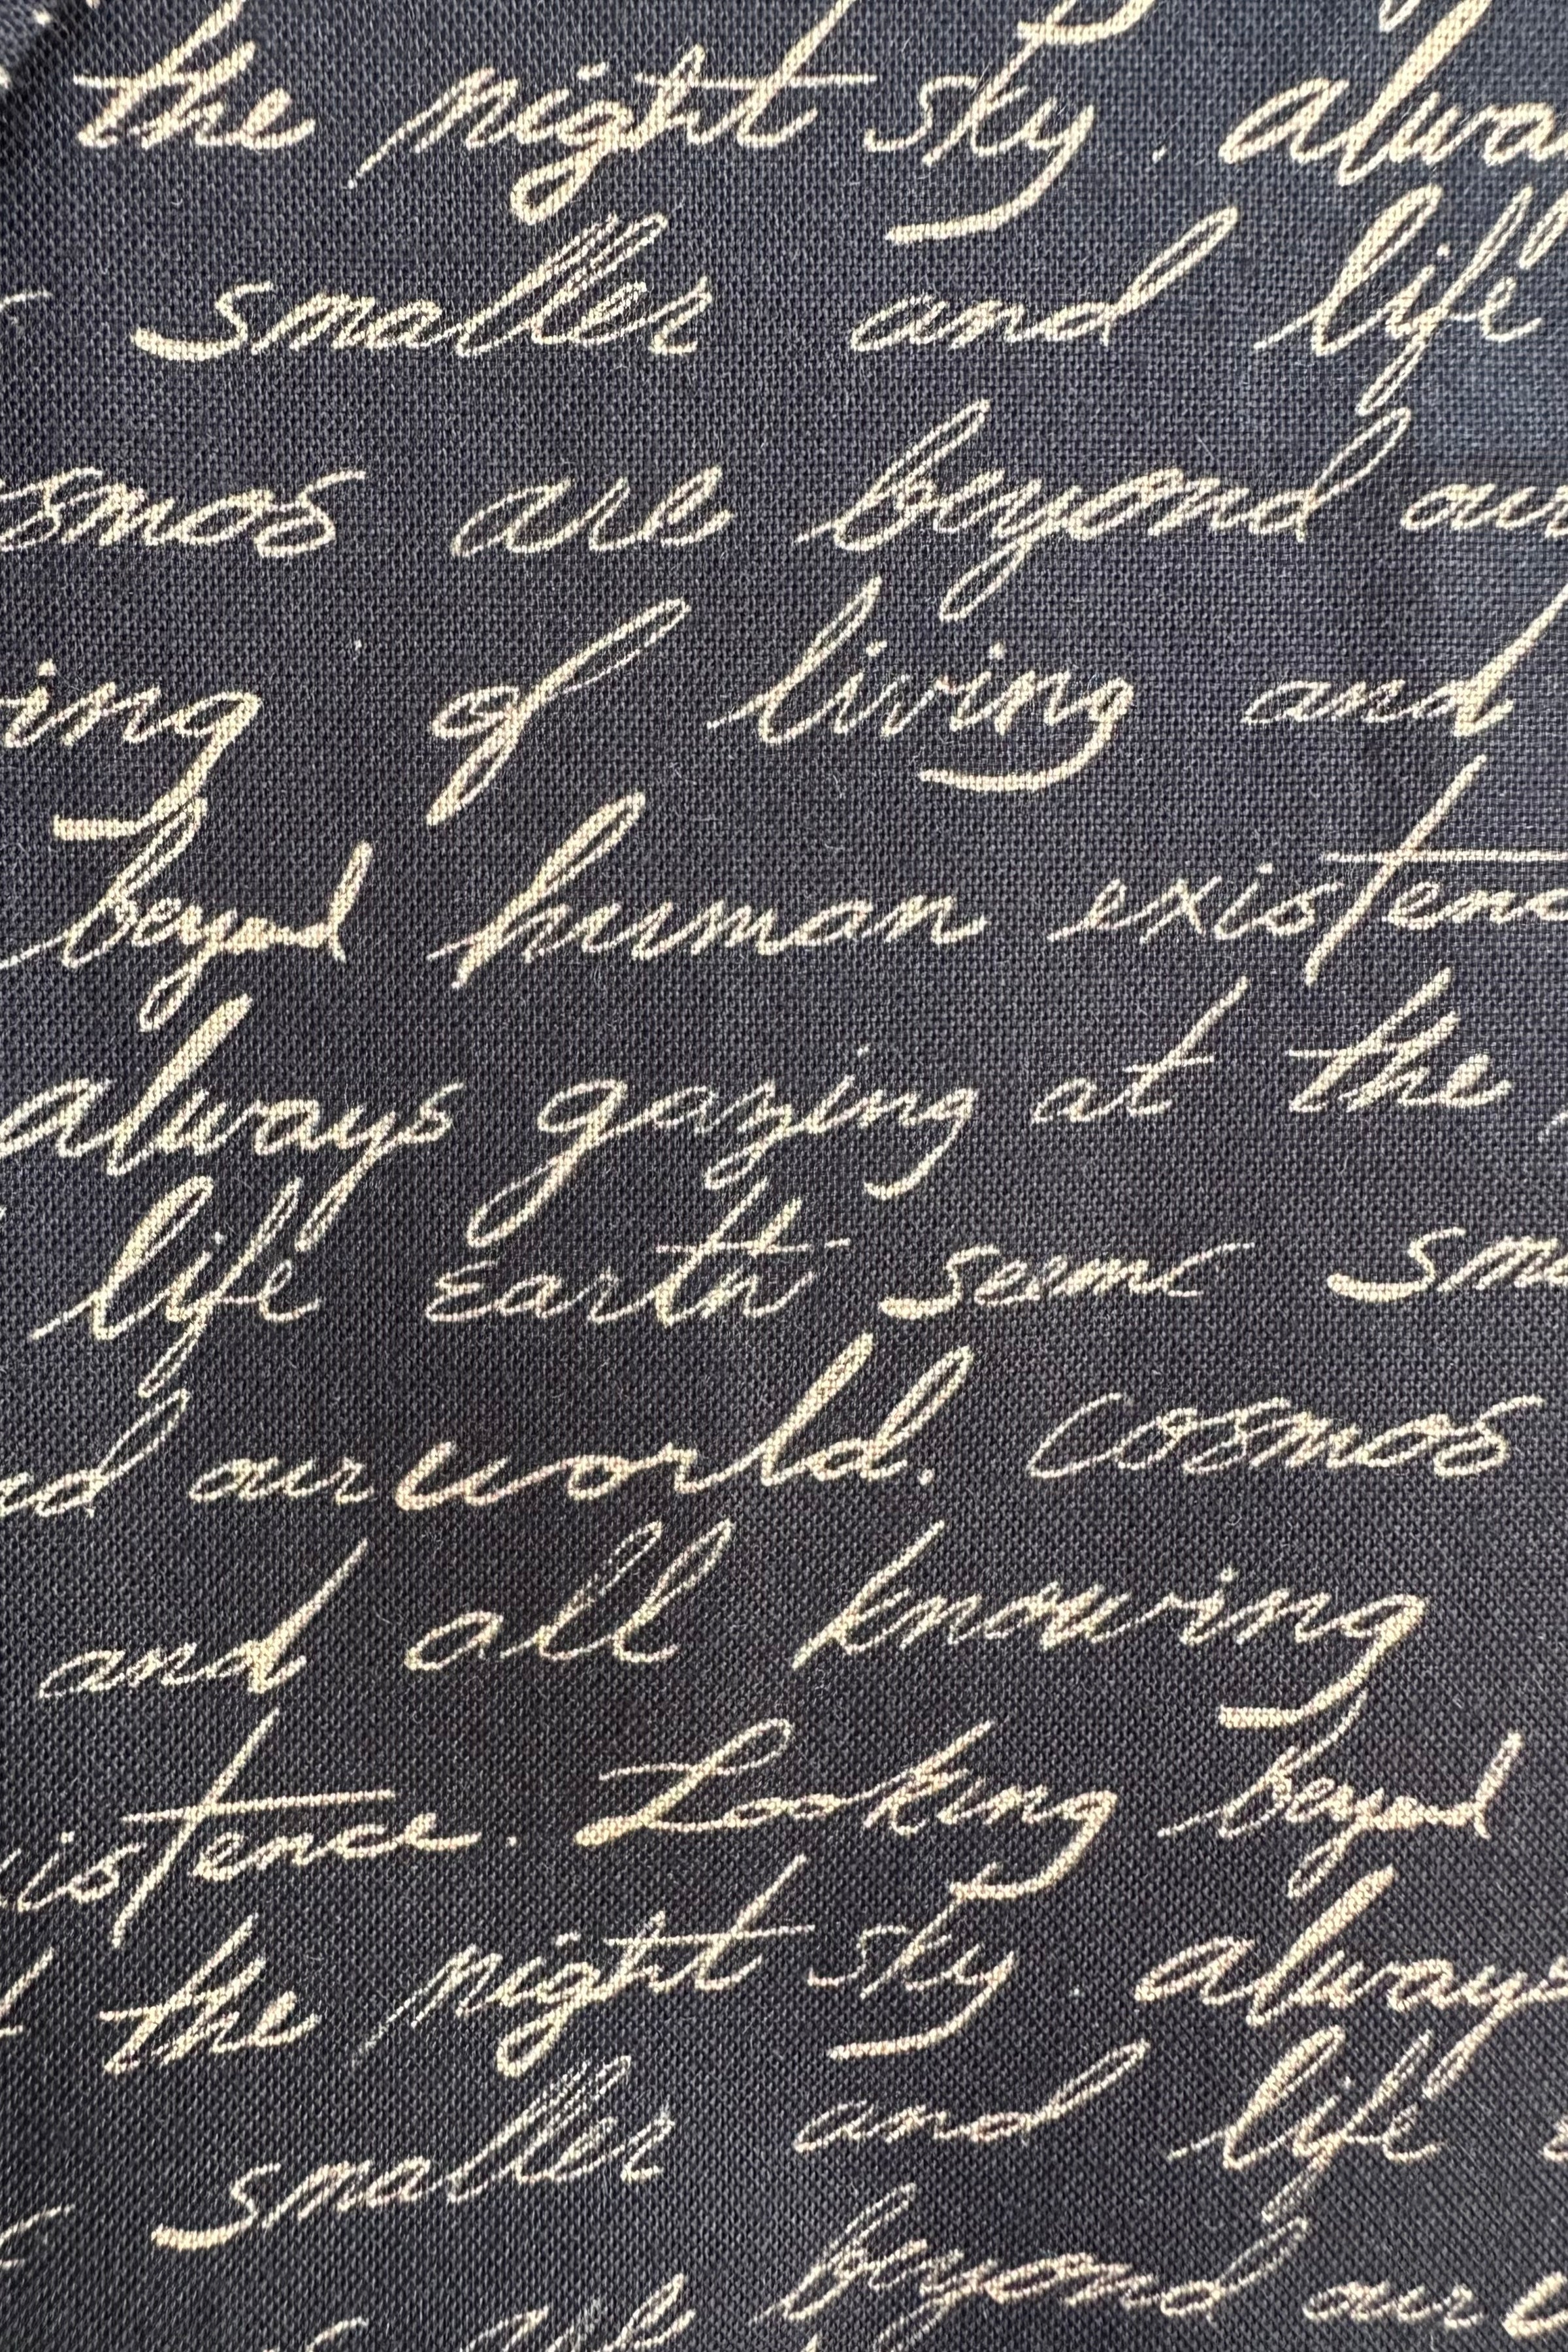 the night sky. alwa
smaller and life
smos are beyond our
ing of living and
beyond human existenc
always gazing at the
life Earth seems sma
nd our world. Cosmos
and all knowing
xistence. Looking beyond
the night sky. always
smaller and life
are beyond our